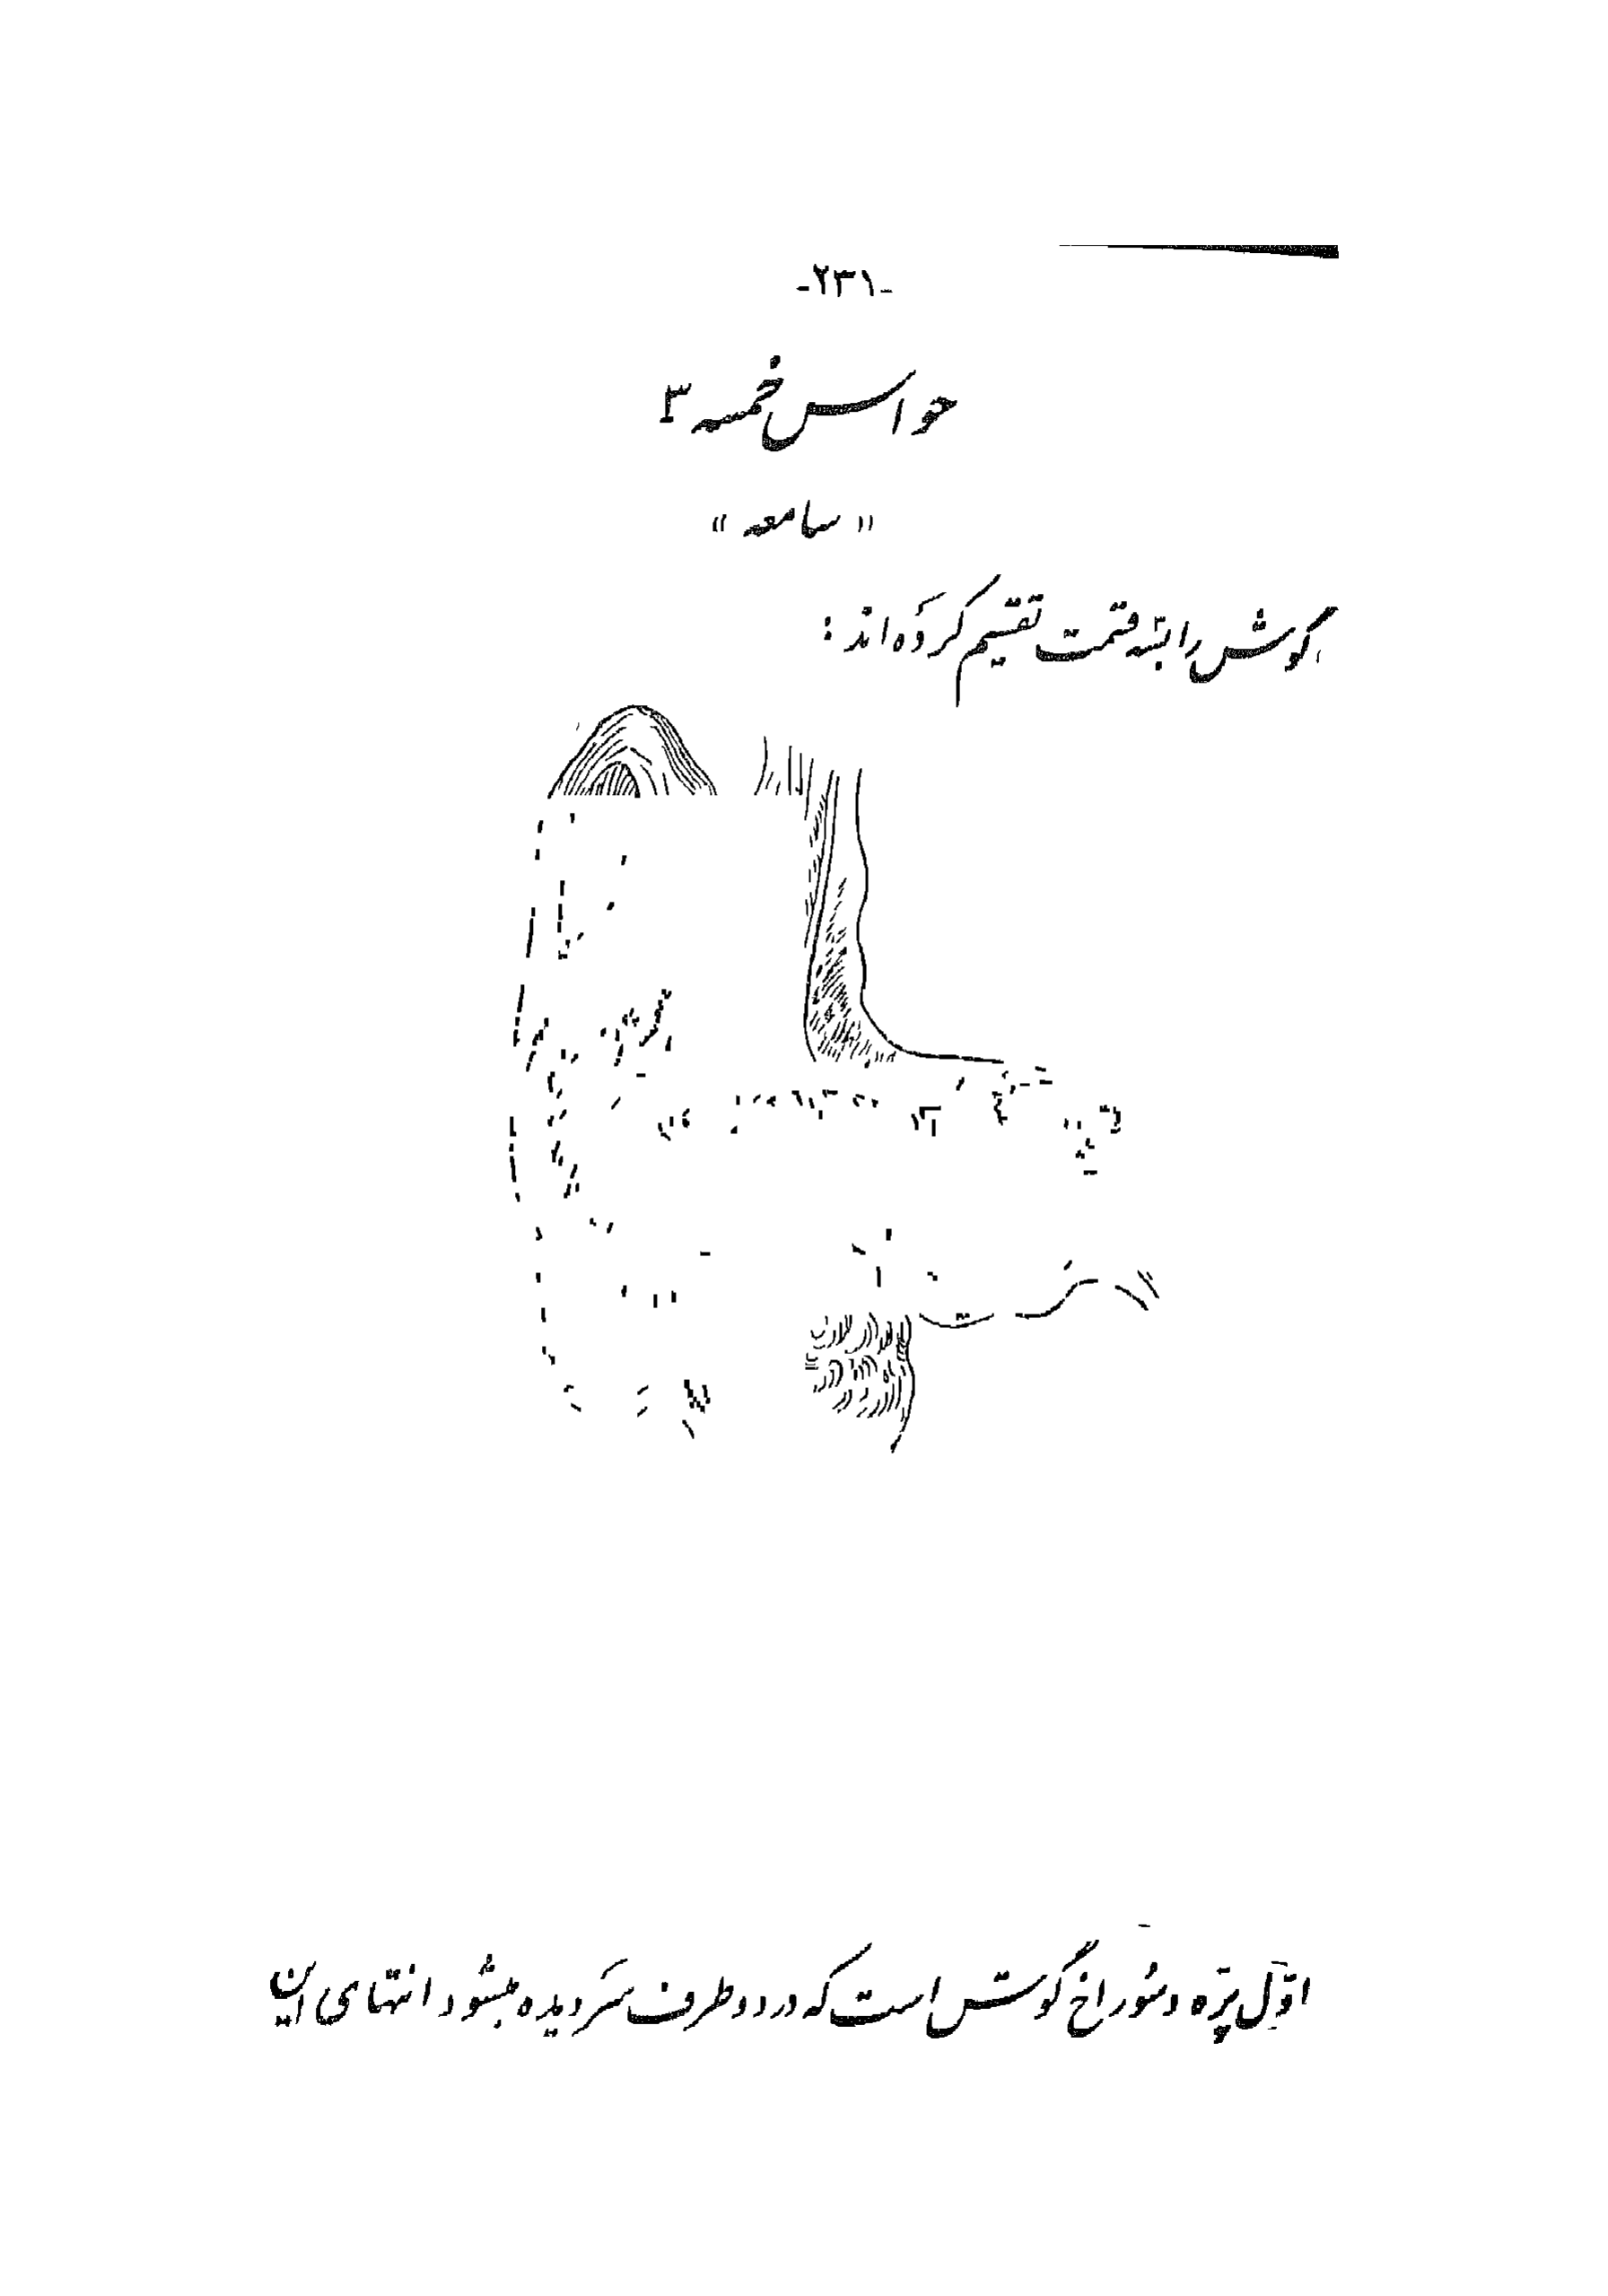 -۲۳۱-
حواس خمسه ۳
«سامعه»
گوش را بسه قسمت تقسیم کرده‌اند:
اوّل پرّه و سوراخ گوش است که در دو طرف سر دیده میشود انتهای این